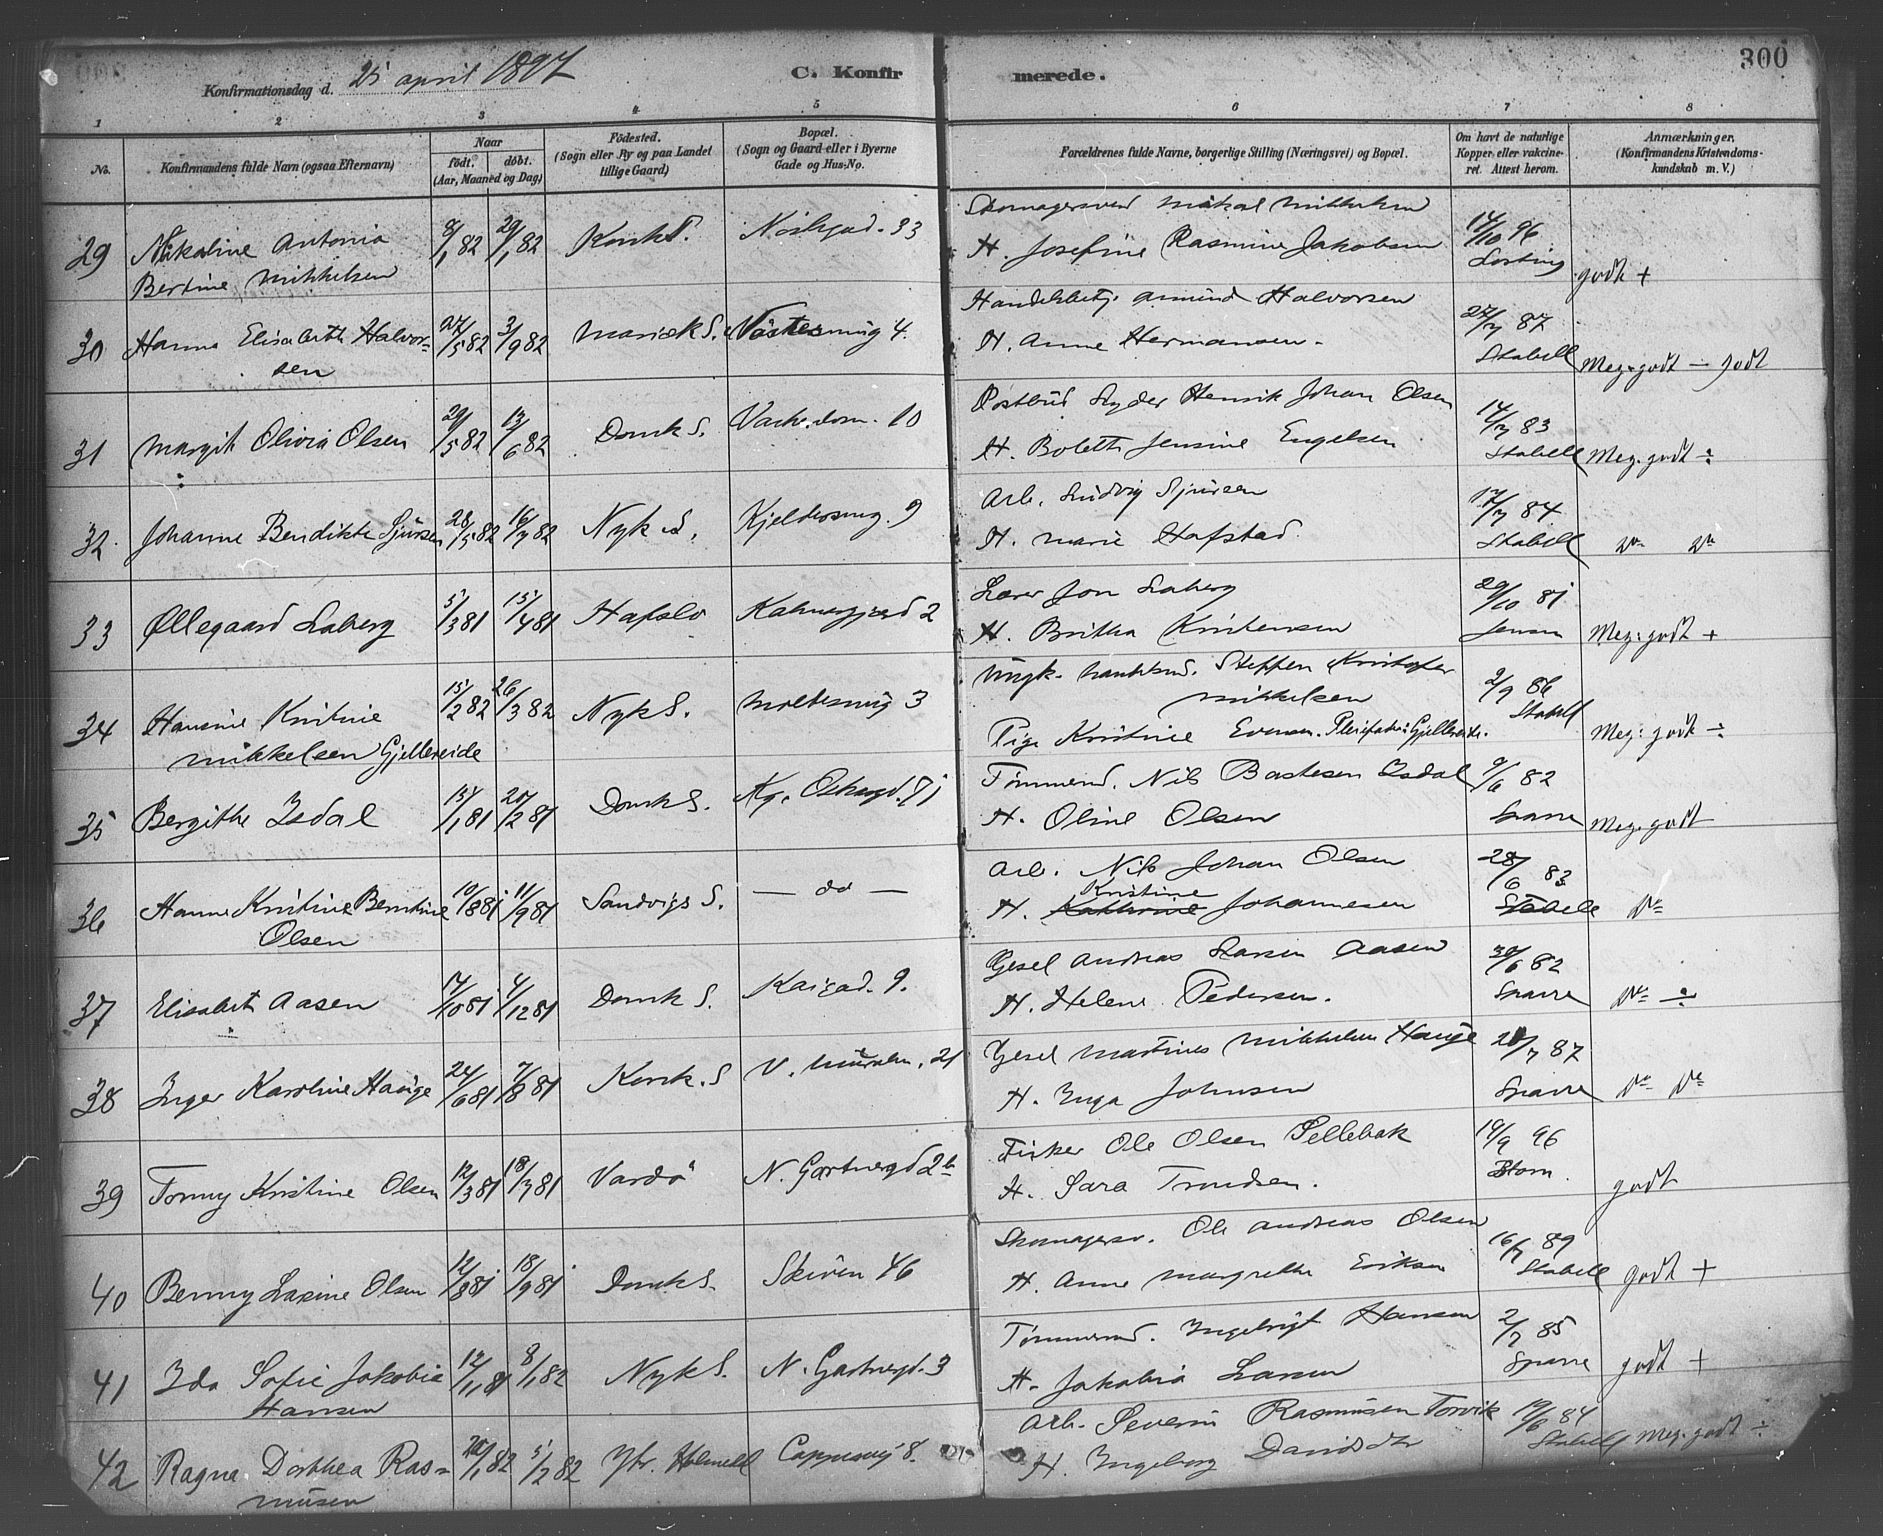 Konfirmationsdag d. 25 april 1897 C. Konfirmerede. 300
1 2 3 4 5 6 7 8
No. Konfirmandens fulde Navn (ogsaa Efternavn) Naar födt. döbt. (Aar, Maaned og Dag) Födested. (Sogn eller By og paa Landet tillige Gaard) Bopæl. (Sogn og Gaard eller i Byerne Gade og Hus-No. Forældrenes fulde Navne, borgerlige Stilling (Næringsvei) og Bopæl. Om havt de naturlige Kopper eller vakcineret. Attest herom. Anmærkninger, (Konfirmandens Kristendomskundskab m. V.)
Skomagersvend Mikal Mikkelsen
29 Nikoline Antonia 8/1 82 29/1 82 Korsk S. 33 H. Josefine Rasmine Jakobsen 14/10 96
Bertine Mikkelsen godt +
Amund Halvorsen
30 Hanna Elisabeth Halvor- 27/5 82 3/9 82 Mariek S. Nöstesmug 4. H. Anne Hermansen. 27/7 87
sen Stabell Meg. godt — godt
Postbud Lyder Henrik Johan Olsen
31 Margit Olivia Olsen 29/5 82 13/6 82 Domk S. 10 H. Bolette Jensine Engelsen 14/7 83
Stabell Meg. godt ÷
Arb. Ludvig Sjursen
32 Johanne Bendikte Sjursen 28/5 82 16/7 82 Nyk S. Kjeldersmug. 9 H. Marie Hafstad. 17/7 84
Stabell do do
Lærer Jon Laberg
33 Øllegaard Laberg 5/3 81 15/4 81 Hafslo 2 H. Britha Kristensen 29/10 81
Jensen Meg: godt +
Steffen Kristofer
Mikkelsen
34 Hansine Kristine 15/2 82 26/3 82 Nyk S. Moltesmug 3 2/9 86
Mikkelsen Gjellereide Pige Kristine Evensen. Pleiefader: Gjellereide. Stabell Meg: godt ÷
Tømmermd. Nils Bastesen Isdal
35 Bergithe Isdal 15/1 81 20/2 81 Domk S. H. Oline Olsen 9/6 82
Sparre Meg. godt
Arb. Nils Johan Olsen
36 Hanna Kristine Berntine 10/8 81 11/9 81 Sandvigs S. — do — H. Kathrine Kristine Johannesen 28/6 83
Olsen Stabell do
Gesel Andreas Larsen Aasen
37 Elisabet Aasen 17/10 81 4/12 81 Domk S. 9. H. Helene Pedersen. 30/6 82
Sparre do ÷
Gesel Martines Mikkelsen Hauge
38 Inger Karoline Hauge 24/6 81 7/8 81 Korsk. S 21 H. Inga Johnsen 87
Sparre do do
Fisker Ole Olsen Sellebak
39 Tonny Kristine Olsen 12/3 81 18/7 81 Vardö N. Gartnergd 2b H. Sara Trondsen. 19/9 96
Blom. godt
Skomagersv. Ole Andreas Olsen
40 Benny Laxine Olsen 12/8 81 18/9 81 Domk S. Skiven 46 H. Anne Margrethe Eriksen 16/7 89
Stabell godt +
Tømmermd. Ingebrigt Hansen
41 Ida Sofie Jakobia 12/11 81 8/1 82 Nyk S. N. Gartnergd. 3 H. Jakobia Larsen 2/7 85
Hansen Sparre godt +
Arb. Severin Rasmusen Torvik
42 Ragna Dorthea Ras- 20/1 82 5/2 82 Ytr. Holmedl 8. H. Ingeborg Davidsdtr 19/6 84
musen Stabell Meg. godt ÷